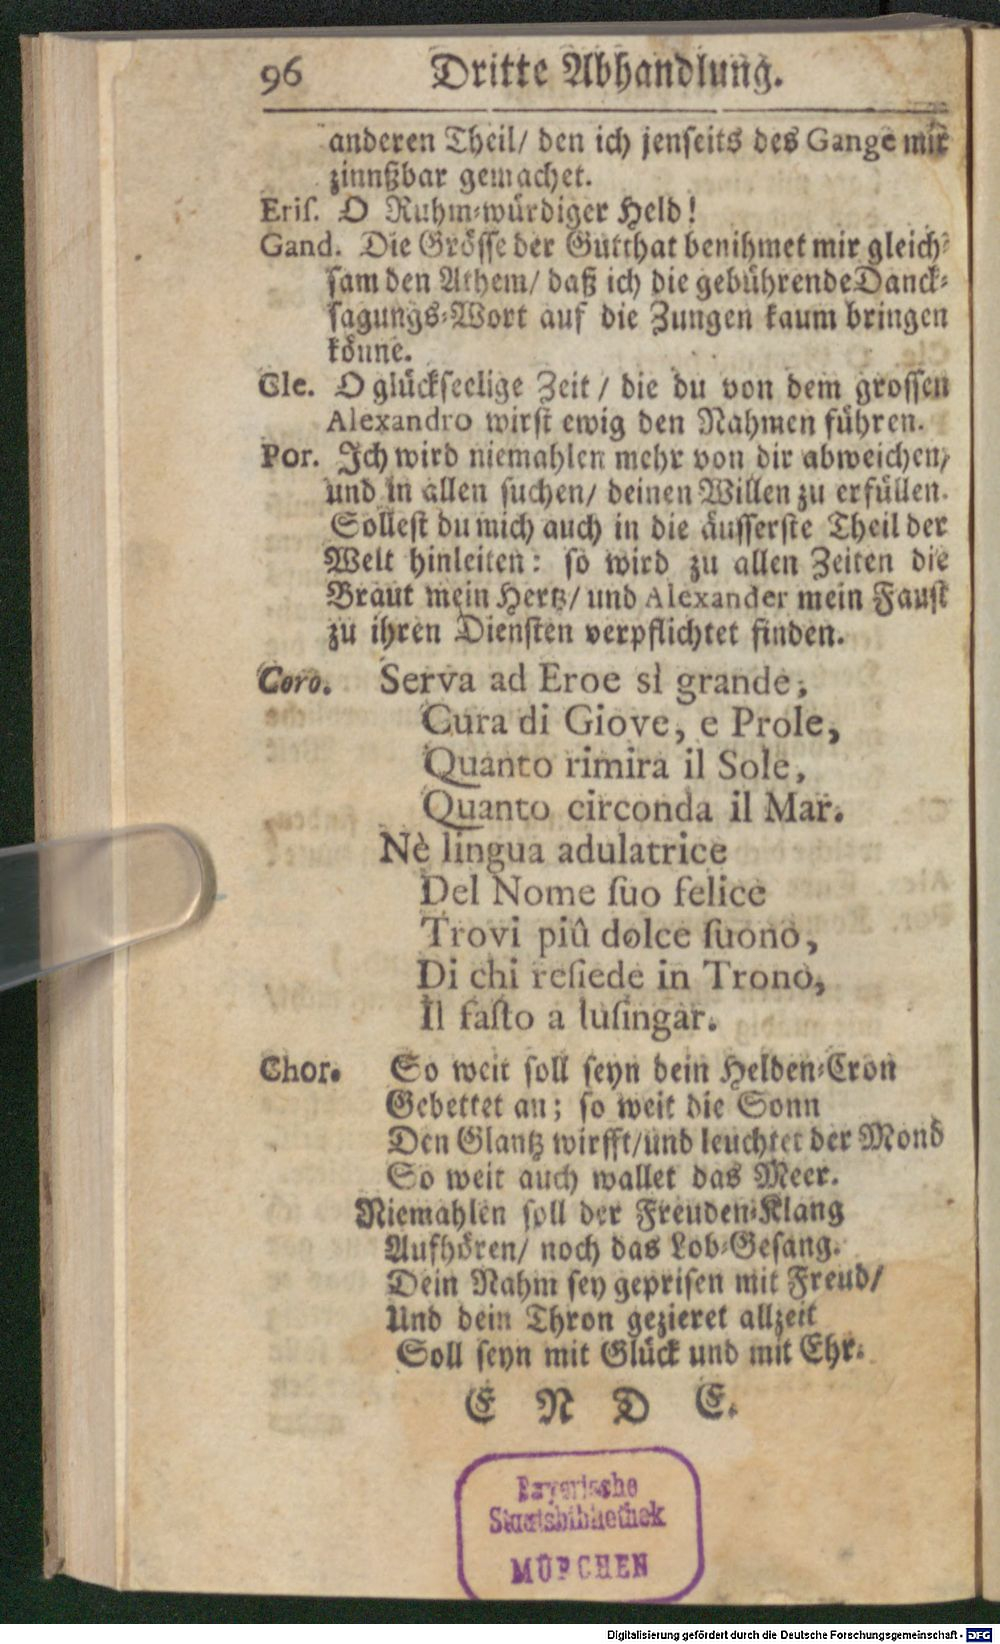 96 Dritte Abhandlung.
anderen Theil/ den ich jenseits des Gange mir
zinnßbar gemachet.
Eriſ. O Ruhm-würdiger Held!
Gand. Die Grösse der Gutthat benihmet mir gleich-
sam den Athem/ daß ich die gebührende Danck-
sagungs-Wort auf die Zungen kaum bringen
könne.
Cle. O glückseelige Zeit / die du von dem grossen
Alexandro wirst ewig den Nahmen führen.
Por. Ich wird niemahlen mehr von dir abweichen/
und in allen suchen/ deinen Willen zu erfüllen.
Sollest du mich auch in die äusserste Theil der
Welt hinleiten: so wird zu allen Zeiten die
Braut mein Hertz/ und Alexander mein Faust
zu ihren Diensten verpflichtet finden.
Coro. Serva ad Eroe sì grande,
Cura di Giove, e Prole,
Quanto rimira il Sole,
Quanto circonda il Mar.
Nè lingua adulatrice
Del Nome ſuo felice
Trovi piû dolce ſuono,
Di chi reſiede in Trono,
Il faſto a luſingar.
Chor. So weit soll seyn dein Helden-Cron
Gebettet an; so weit die Sonn
Den Glantz wirfft/und leuchtet der Mond
So weit auch wallet das Meer.
Niemahlen soll der Freuden-Klang
Aufhören/ noch das Lob-Gesang.
Dein Nahm sey geprisen mit Freud/
Und dein Thron gezieret allzeit
Soll seyn mit Glück und mit Ehr.
E N D E.
Bayerische
Staatsbibliothek
MÜNCHEN
Digitalisierung gefördert durch die Deutsche Forschungsgemeinschaft - DFG